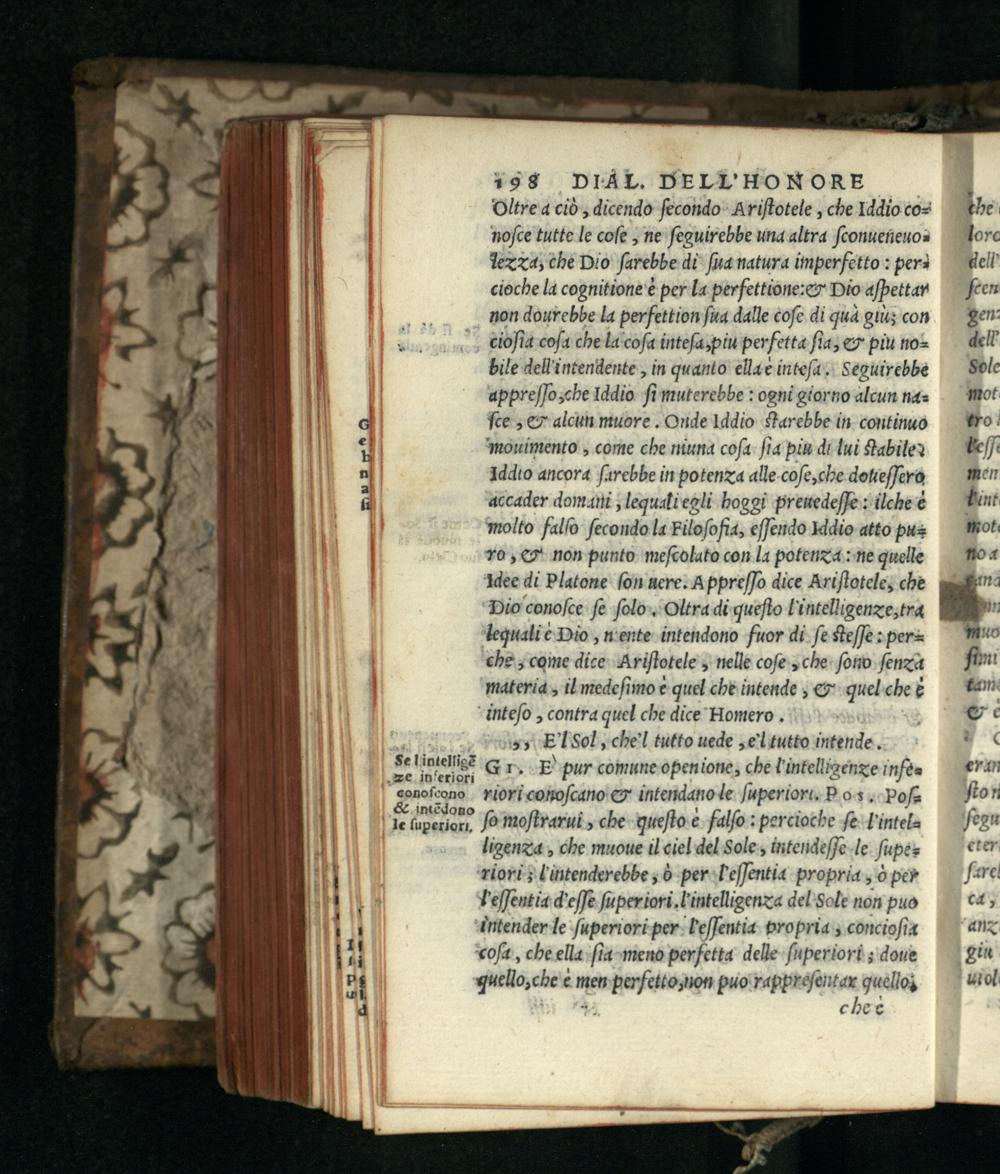 198 DIAL. DELL'HONORE
Oltre a ciò, dicendo ſecondo Ariſtotele, che Iddio co-
noſce tutte le coſe, ne ſeguirebbe una altra ſconueneuo-
lezza, che Dio ſarebbe di ſua natura imperfetto: per-
cioche la cognitione è per la perfettione: & Dio aſpettar
non dourebbe la perfettion ſua dalle coſe di quà giù; con
cioſia coſa che la coſa inteſa, piu perfetta ſia, & piu no-
bile dell'intendente, in quanto ella è inteſa. Seguirebbe
appreſſo, che Iddio ſi muterebbe: ogni giorno alcun na-
ſce, & alcun muore. Onde Iddio ſtarebbe in continuo
mouimento, come che niuna coſa ſia piu di lui ſtabile.
Iddio ancora ſarebbe in potenza alle coſe, che doueſſero
accader domani, lequali egli hoggi preuedeſſe: ilche è
molto falſo ſecondo la Filoſofia, eſſendo Iddio atto pu-
ro, & non punto meſcolato con la potenza: ne quelle
Idee di Platone ſon uere. Appreſſo dice Ariſtotele, che
Dio conoſce ſe ſolo. Oltra di queſto l'intelligenze, tra
lequali è Dio, n ente intendono fuor di ſe ſteſſe: per-
che, come dice Ariſtotele, nelle coſe, che ſono ſenza
materia, il medeſimo è quel che intende, & quel che è
inteſo, contra quel che dice Homero.
,, E'l Sol, che'l tutto uede, e'l tutto intende.
GI. E' pur comune openione, che l'intelligenze infe-
riori conoſcano & intendano le ſuperiori. POS. Poſ-
ſo moſtrarui, che queſto è falſo: percioche ſe l'intel-
ligenza, che muoue il ciel del Sole, intendeſſe le ſupe-
riori; l'intenderebbe, ò per l'eſſentia propria, ò per
l'eſſentia d'eſſe ſuperiori. l'intelligenza del Sole non puo
intender le ſuperiori per l'eſſentia propria, concioſia
coſa, che ella ſia meno perfetta delle ſuperiori; doue
quello, che è men perfetto, non puo rappreſentar quello,
che è
Se l intelligē
ze inferiori
conoſcono
& intēdono
le ſuperiori.